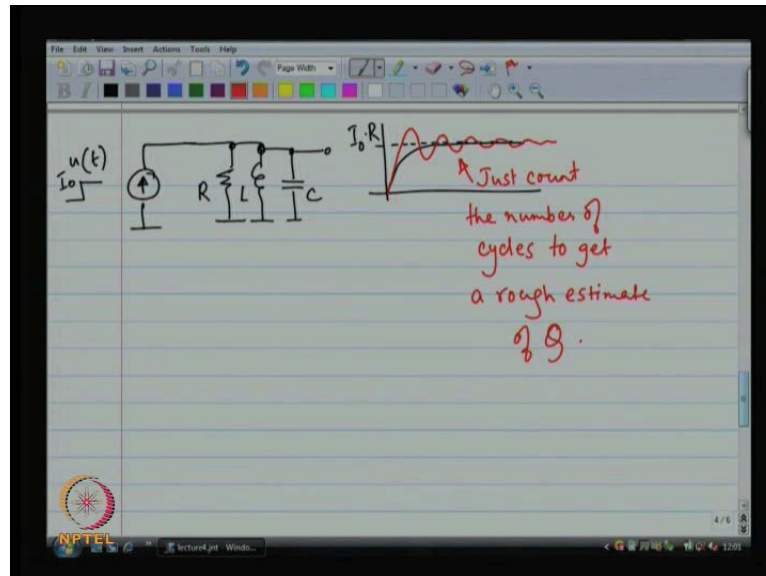 File Edit View Insert Actions Tools Help
Page Width
B I
u(t)
I₀
R
L
C
I₀·R
Just count
the number of
cycles to get
a rough estimate
of Q.
4/6
NPTEL
lecture4.jnt - Windo...
12:01